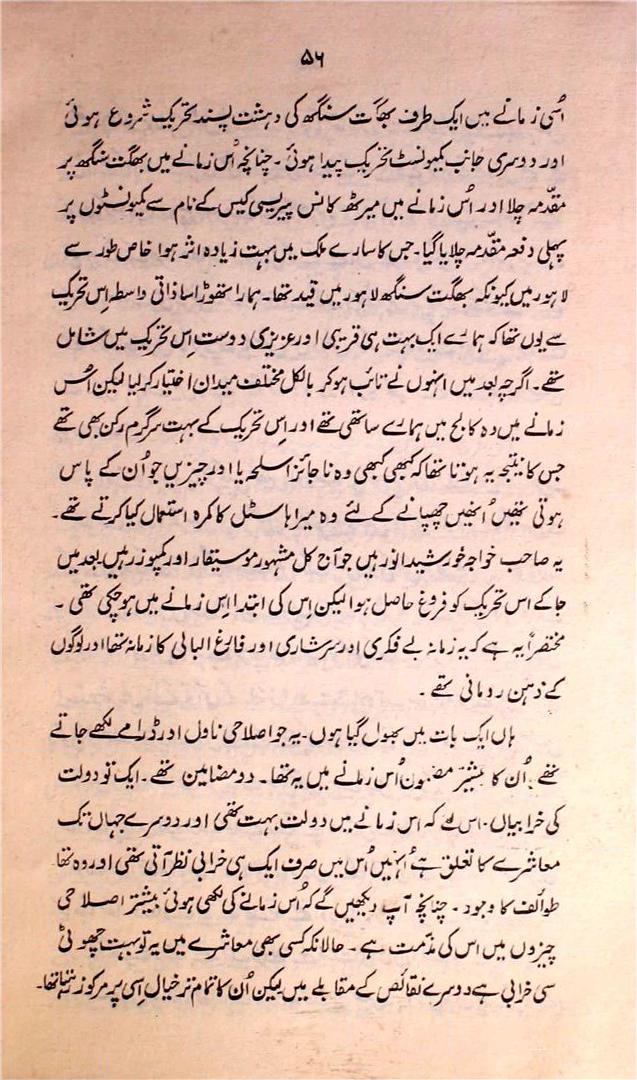 ۵۶
اُسی زمانے میں ایک طرف بھگت سنگھ کی دہشت پسند تحریک شروع ہوئی
اور دوسری جانب کمیونسٹ تحریک پیدا ہوئی ۔ چنانچہ اُس زمانے میں بھگت سنگھ پر
مقدّمہ چلا اور اُس زمانے میں میرٹھ کانس پیریسی کیس کے نام سے کمیونسٹوں پر
پہلی دفعہ مقدّمہ چلایا گیا۔ جس کا سارے ملک میں بہت زیادہ اثر ہوا خاص طور سے
لاہور میں کیونکہ بھگت سنگھ لاہور میں قید تھا۔ ہمارا تھوڑا سا ذاتی واسطہ اِس تحریک
سے یوں تھا کہ ہمارے ایک بہت ہی قریبی اور عزیزی دوست اِس تحریک میں شامل
تھے۔ اگرچہ بعد میں انہوں نے تائب ہو کر بالکل مختلف میدان اختیار کر لیا لیکن اُس
زمانے میں وہ کالج میں ہمارے ساتھی تھے اور اِس تحریک کے بہت سرگرم رکن بھی تھے
جس کا نتیجہ یہ ہوتا تھا کہ کبھی کبھی وہ ناجائز اسلحہ یا اور چیزیں جو اُن کے پاس
ہوتی تھیں اُنھیں چھپانے کے لئے وہ میرا ہاسٹل کا کمرہ استعمال کیا کرتے تھے۔
یہ صاحب خواجہ خورشید انور ہیں جو آج کل مشہور موسیقار اور کمپوزر ہیں بعد میں
جا کے اس تحریک کو فروغ حاصل ہوا لیکن اِس کی ابتدا اِس زمانے میں ہو چکی تھی ۔
مختصراً یہ ہے کہ یہ زمانہ بے فکری اور سرشاری اور فارغ البالی کا زمانہ تھا اور لوگوں
کے ذہن رومانی تھے ۔
ہاں ایک بات میں بھول گیا ہوں۔ یہ جو اصلاحی ناول اور ڈرامے لکھے جاتے
تھے اُن کا بیشتر مضمون اُس زمانے میں یہ تھا۔ دو مضامین تھے ۔ ایک تو دولت
کی خرابیاں۔ اس لئے کہ اس زمانے میں دولت بہت تھی اور دوسرے جہاں تک
معاشرے کا تعلق ہے اُنہیں اُس میں صرف ایک ہی خرابی نظر آتی تھی اور وہ تھا
طوائف کا وجود ۔ چنانچہ آپ دیکھیں گے کہ اُس زمانے کی لکھی ہوئی بیشتر اصلاحی
چیزوں میں اس کی مذمّت ہے ۔ حالانکہ کسی بھی معاشرے میں یہ تو بہت چھوٹی
سی خرابی ہے دوسرے نقائص کے مقابلے میں لیکن اُن کا تمام تر خیال اِسی پر مرکوز رہتا تھا۔